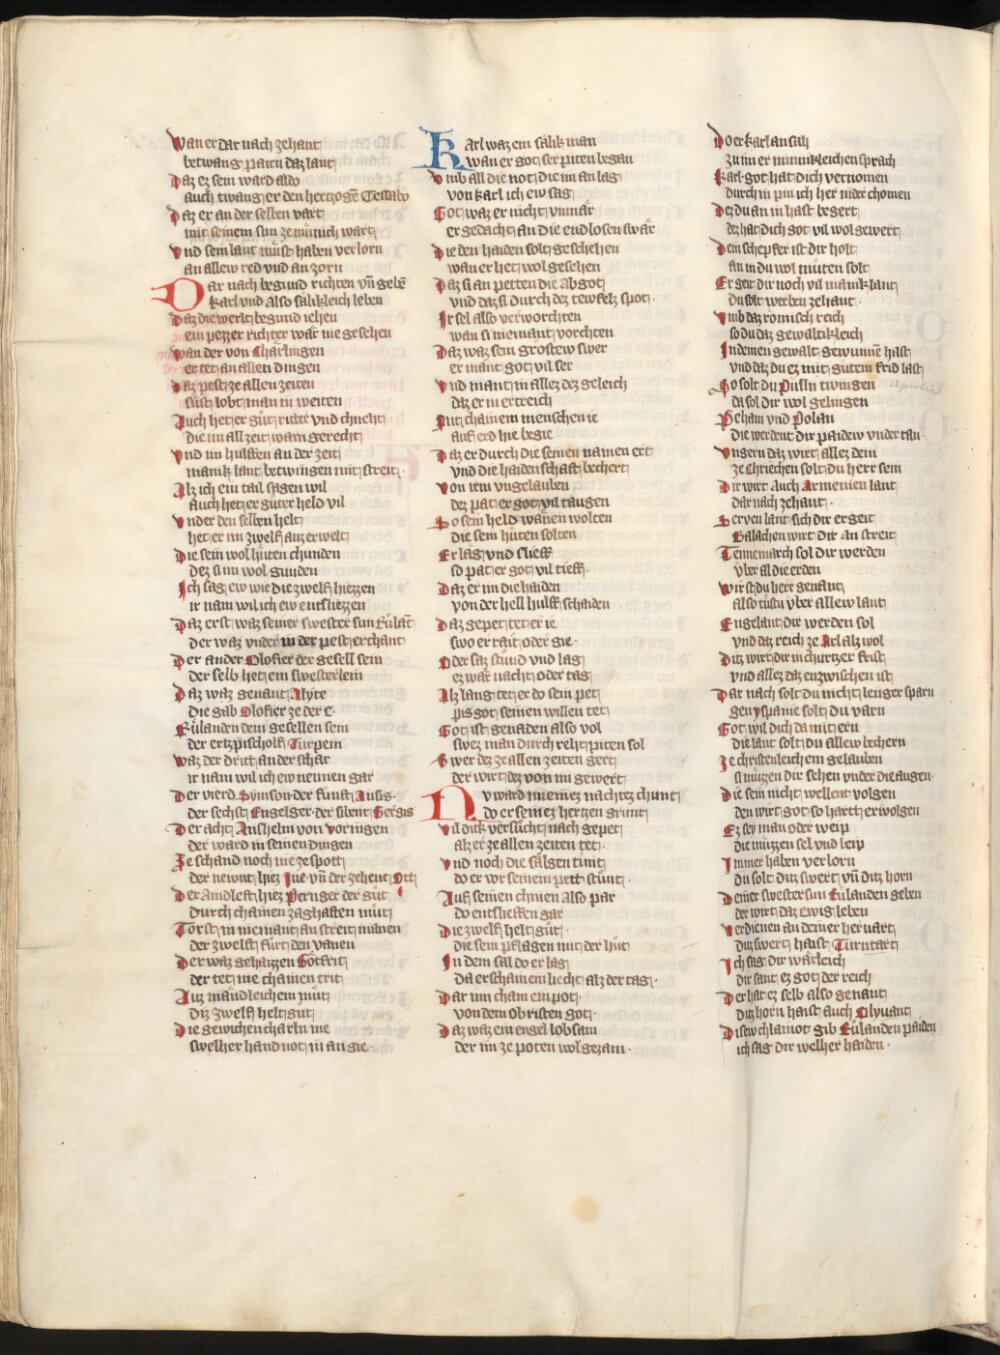 Wan er dar nach zehant
betwang pairn daz lant
Daz ez sein ward aldo
auch twang er den hertzogē Tessabo
Daz er an der selben vart
mit seinem sun ze münich wart
Vnd sein lant müst haben verlorn
an allew red vnd an zorn
Dar nach begund richten vn̄ gebē
karl vnd also sälikleich leben
Daz die werlt begund iehen
ein pezzer richter wär nie gesehen
Wan der von Charlingen
er tet an allen dingen
Daz pest ze allen zeiten
süst lobt man in weiten
Auch het er güt ritter vnd chneht
die im all zeit warn gereht
Vnd im hulffen an der zeit
manik lant betwingen mit streit
Alz ich ein tail sagen wil
Auch het er guter held vil
Vnder den selben helt
het er im zwelf auz erwelt
Die sein wol hüten chunden
dez si im wol gunden
Ich sag ew wie die zwelf hiezzen
ir nam wil ich ew entsliezzen
Daz erst waz seiner swester sun Rülant
der waz vnder in der pest erchant
Der ander Olofier der gesell sein
der selb het ein swesterlein
Daz waz genant Alyte
die gab Olofier ze der e
Rülanden dem gesellen sein
der ertzpischolf Turpein
Waz der dritt an der schar
ir nam wil ich ew nennen gar
Der vierd Symson der funft Ansis
der sechst Engelger der sibent Gergis
Der acht Anshelm von Voringen
der ward in seinen dingen
Ze schand noch nie ze spott
der newnt hiez Iue vn̄ der zehent Ott
Der Aindleft hiez Pernger der güt
durch chainen zaghaften müt
Torst in niemant an streit manen
der zwelft fürt den vanen
Der waz gehaizzen Götfrit
der tet nie chainen trit
Auz mändleichem müt
diz zwelf helt gut
Die gewichen charln nie
swelher hand not in an gie
Karl waz ein sälik man
wan er got ser piten began
Vmb all die not die im an lag
von karl ich ew sag
Got waz er nicht vnmär
er gedacht an die endlosen swär
Die den haiden solt geschehen
wan er het wol gesehen
Daz si an petten die abgot
vnd daz si durch dez tewfelz spot
Ir sel also verworchten
wan si niemant vorchten
Daz waz sein gröstew swer
er mant got vil ser
Vnd mant in allez dez geleich
daz er in ertreich
Mit chainem menschen ie
auf erd hie begie
Daz er durch die seinen namen ert
vnd die haidenschaft bechert
Von irem vngelauben
dez pat er got vil taugen
So sein held wänen wolten
die sein hüten solten
Er läg vnd slieff
so pat er got vil tieff
Daz er im die haiden
von der hell hulff schaiden
Daz gepet tet er ie
swo er rait oder gie
Oder saz stuind vnd lag
ez wär nacht oder tag
Alz lang tet er do sein pet
pis got seinen willen tet
Got ist genaden also vol
swez man durch reht piten sol
Swer dez ze allen zeiten gert
der wirt dez von im gewert
Nv ward in einez nachtez chunt
do er seinez hertzen grunt
Vil dick versücht nach gepet
alz er ze allen zeiten tet
Vnd noch die säligen tünt
do er vor seinem pett stünt
Auf seinen chnien also par
do entslieffen gar
Die zwelf helt güt
die sein pflagen mit der hüt
In dem sal do er lag
da erschain ein liecht alz der tag
Dar inn cham ein pot
von dem obristen got
Daz waz ein engel lobsam
der im ze poten wol gezam
Do er karl an sah
zu im er minnikleichen sprach
Karl got hat dich vernomen
durch in pin ich her nider chomen
Dez du an in hast begert
dez hat dich got vil wol gewert
Dein schepfer ist dir holt
an in du wol müten solt
Er geit dir noch vil manik lant
du solt werben zehant
Vmb daz römisch reich
so du daz gewaltikleich
In deinen gewalt gewunnē hast
vnd daz du ez mit gutem frid last
So solt du Pülln twingen
da sol dir wol gelingen
Peham vnd Polan
die werdent dir paidew vndertan
Vngern daz wirt allez dein
ze chriechen solt du herr sein
Dir wirt Auch Armenien lant
dar nach zehant
Servenlant sich dir ergeit
Balachen wirt dir An streit
Tennemarch sol dir werden
vber al die erden
Wirst du herr genant
also tüstu vber allew lant
Engelant dir werden sol
vnd daz reich ze Arl alz wol
Ditz wirt dir in churtzer frist
vnd allez daz enzwischen ist
Dar nach solt du nicht lenger sparn
gen yspanie solt du varn
Got wil dich da mit ern
die lant solt du allew bechern
Ze christenleichem gelauben
si müzzen dir sehen vnder die augen
Die sein nicht wellent volgen
den wirt got so hart erwolgen
Ez sey man oder weip
die müzzen sel vnd leip
Immer haben verlorn
du solt ditz swert vn̄ ditz horn
Deiner swester sun Rülanden geben
der wirt daz ewig leben
Verdienen an deiner her uart
ditz swert haist Turntart
Ich sag dir wärleich
dir sant ez got der reich
Der hat ez selb also genant
ditz horn haist auch Olyuant
Disew chlainot gib Rülanden paiden
ich sag dir welher haiden